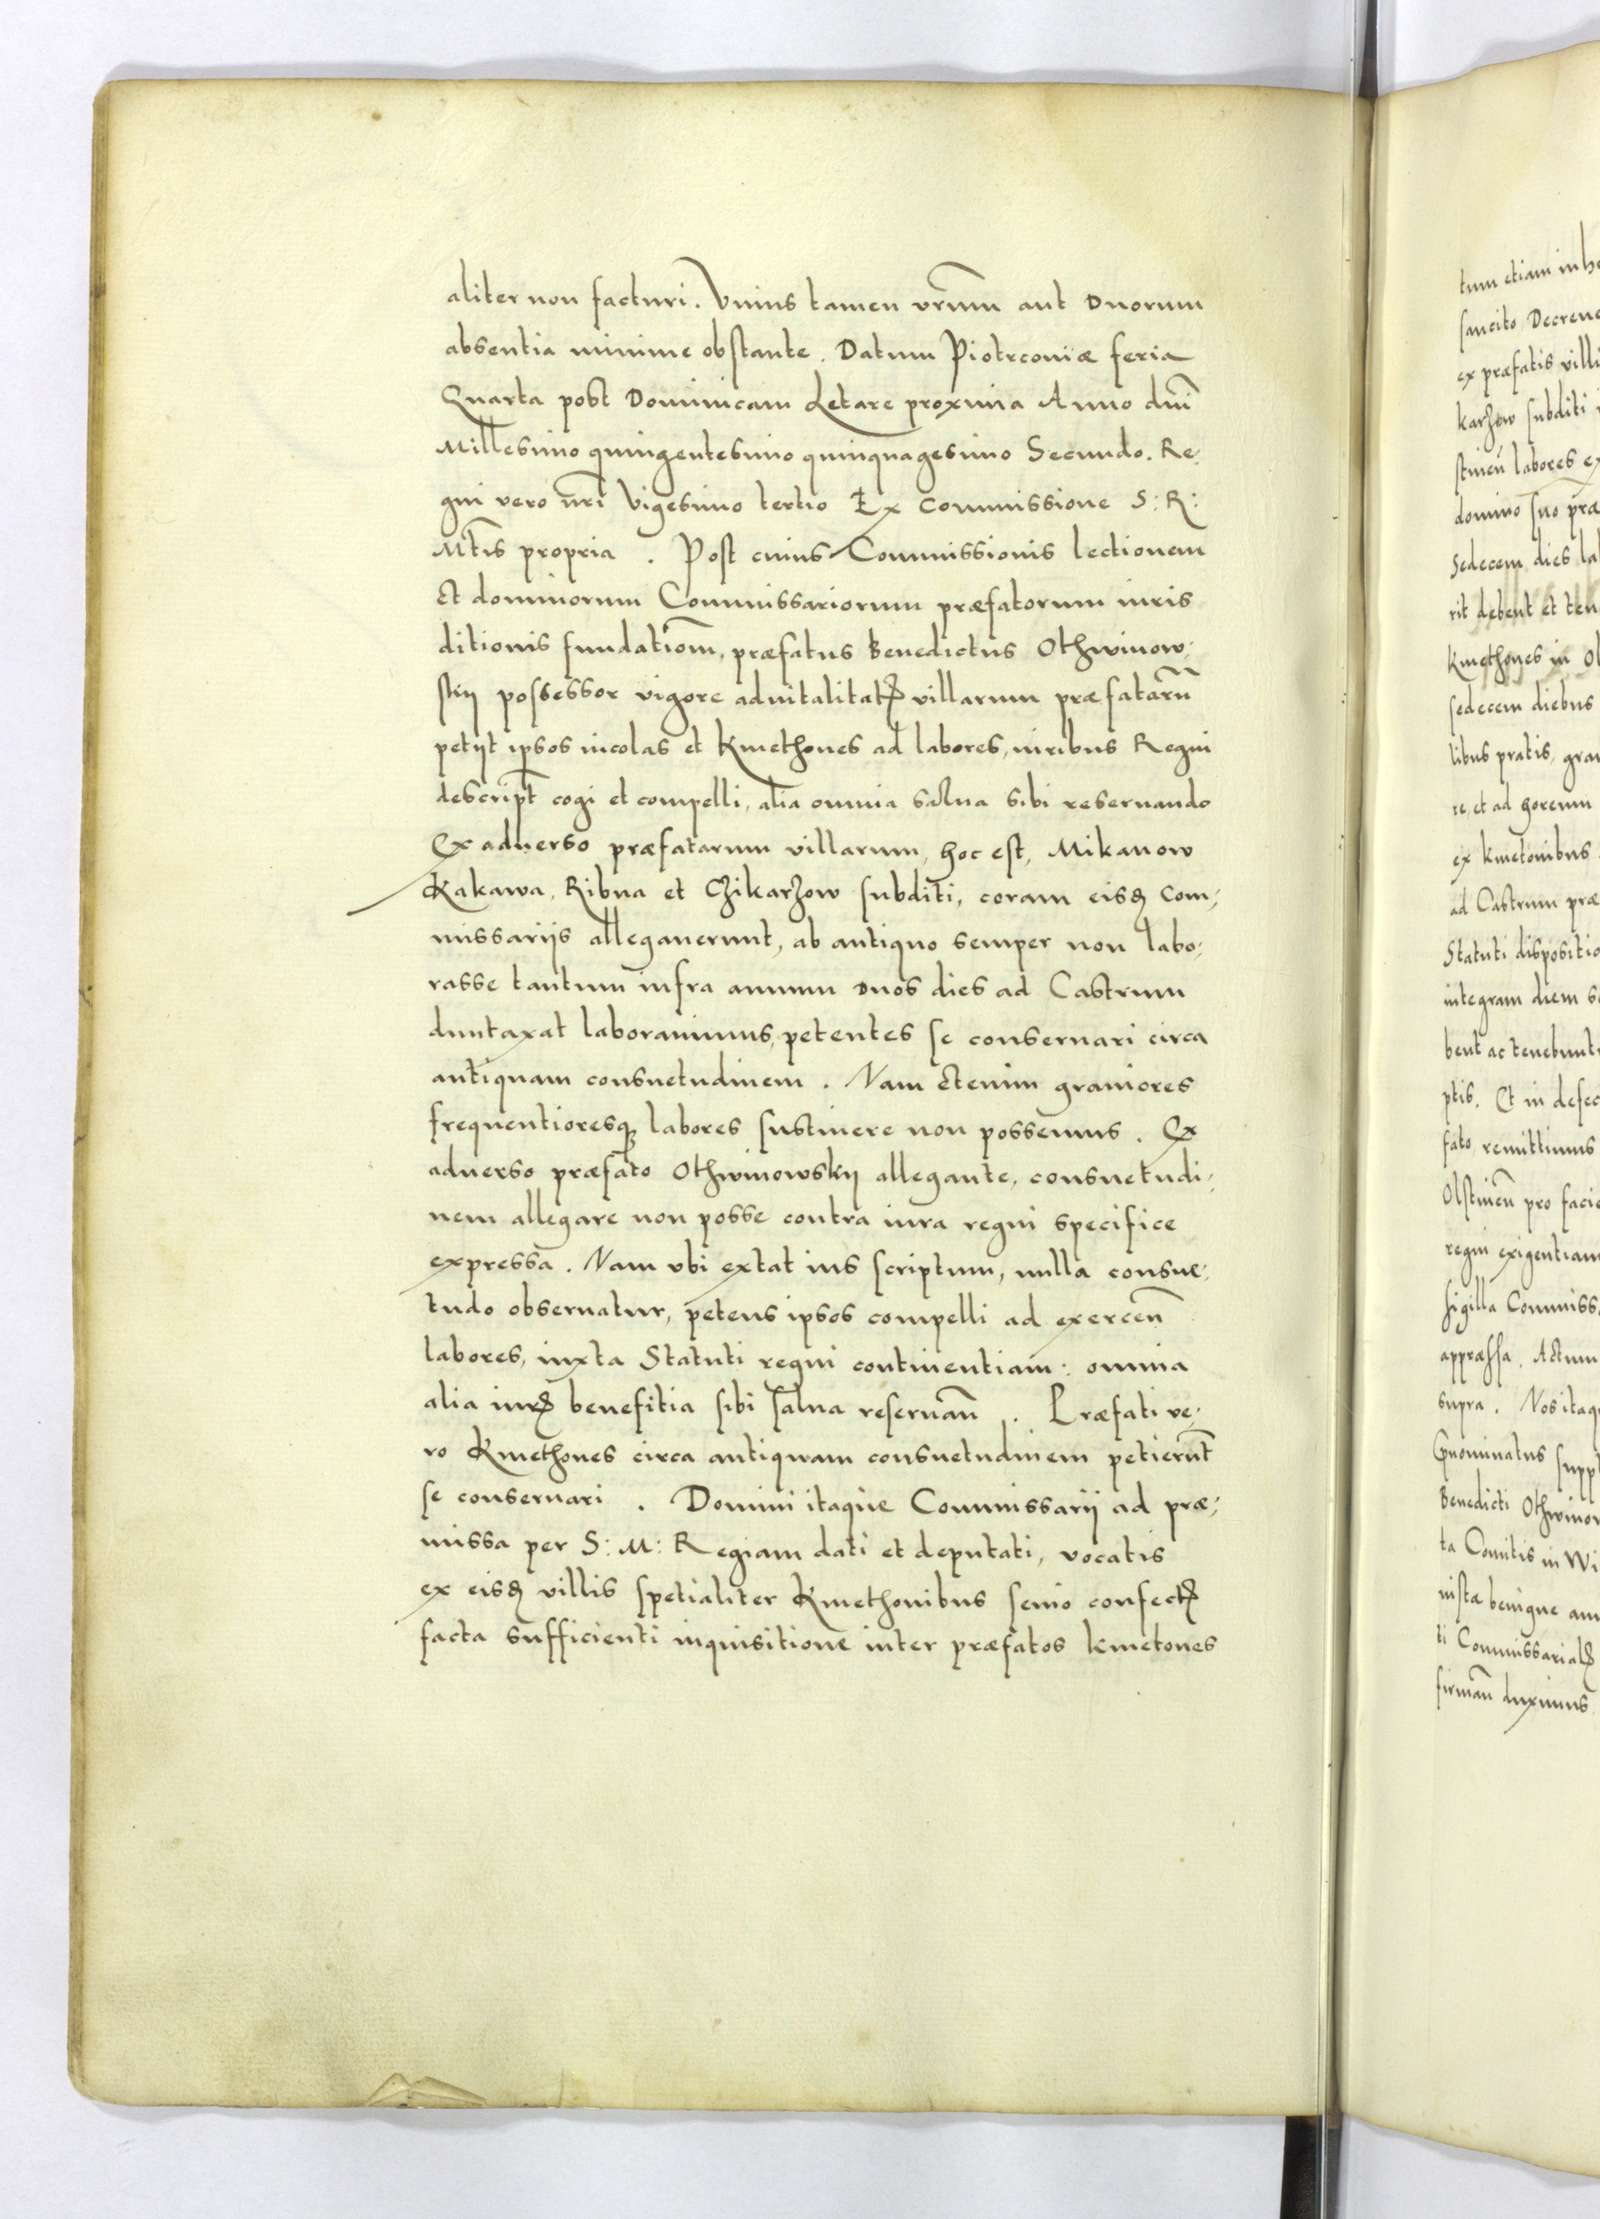 aliter non facturi. Vnius tamen vrūm aut Duorum
absentia minime obstante. Datum Piotrconiæ feria
Quarta post Dominicam Letare proxima Anno dnī
Millesimo quingentesimo quinquagesimo Secundo. Re,
gni vero nrī Vigesimo tertio Ex Commissione S: R:
Mtīs propria. Post cuius Commissionis lectionem
Et dominorum Commissariorum præfatorum iuris
ditionis fundatiom̄, præfatus Benedictus Othwinow,
skij possessor vigore aduitalitatꝭ villarum præfatarū
petijt ipsos incolas et Kmethones ad labores, iuribus Regni
descript̄ cogi et compelli, alīa omnia salua sibi reseruando
Ex aduerso præfatarum villarum, hoc est, Mikanow
Kakawa, Ribna et Czikarzow subditi, coram eisꝫ Com,
missarijs allegauerunt, ab antiquo semper non labo,
rasse tantum infra annum duos dies ad Castrum
duntaxat laborauimus, petentes se conseruari circa
antiquam consuetudinem. Nam etenim grauiores
frequentioresqꝫ labores sustinere non possemus. Ex
aduerso præfato Othwinowskij allegante, consuetudi,
nem allegare non posse contra iura regni specifice
expressa. Nam vbi extat ius scriptum, nulla consue,
tudo obseruatur, petens ipsos compelli ad exercen̄
labores, iuxta Statuti regni continentiam: omnia
alia iurꝭ benefitia sibi salua reseruan̄. Præfati ve,
ro Kmethones circa antiquam consuetudinem petierūt
se conseruari. Domini itaque Commissarij ad præ,
missa per S: M: Regiam dati et deputati, vocatis
ex eisꝫ villis spetialiter Kmethonibus senio confectꝭ
facta sufficienti inquisitione inter præfatos kmetones
tum etiam in
sancito Decreue
ex præfatis villi
karzow subditi
stineñ labores ex
domino suo præ
Sedecem dies la
rit debent et ten
Kmethones in Ol
sedecem diebus
libus pratis, gra
re, et ad horeum
ex kmetonibus
ad Castrum præ
Statuti dispositio
integram diem s
bent ac tenebunt
ptis. Et in defec
fato remittimus
Olstineñ pro facie
regni exigentiam
sigilla Commiss
appræssa. Actum
supra. Nos itaq
supp
Benedicti Othwinow
ta Comitis in Wi
iustæ benigne an
ti Commissarialꝭ
firman̄ duximus